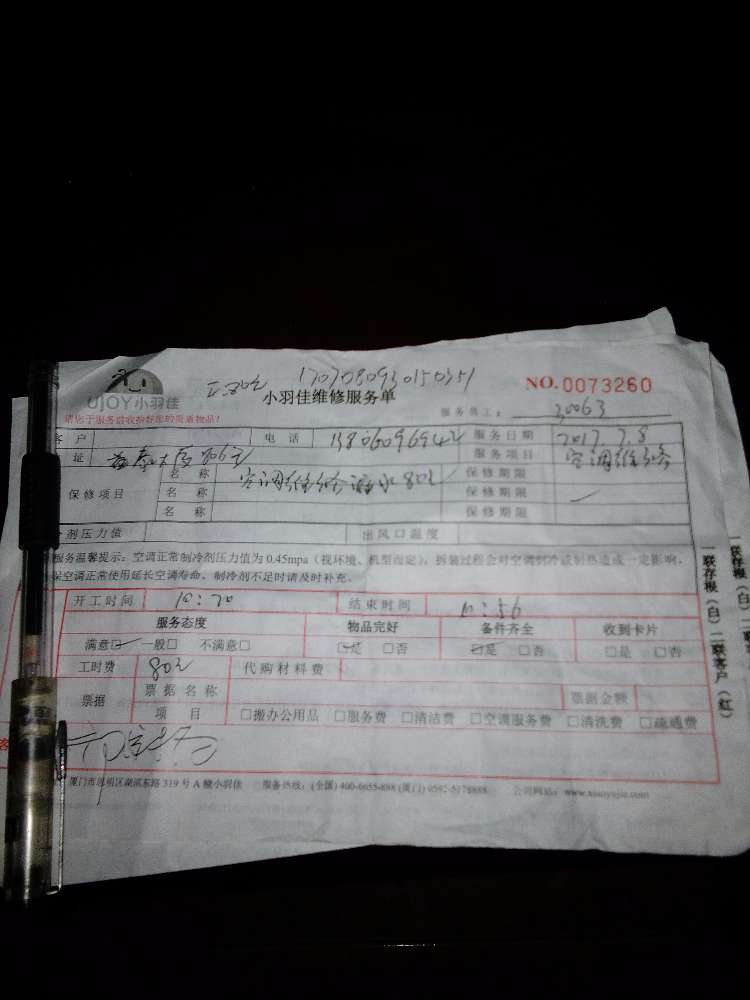 1707080930150351
NO.0073260
UJOY小羽佳
小羽佳维修服务单
服务员工: 30063
请您于服务前收拾好您的贵重物品!
客户 电话 13806096942 服务日期 2017.7.8
址 泰大厦806室 服务项目 空调维修
保修项目 名称 空调维修漏水80元 保修期限
名称 保修期限
名称 保修期限
剂压力值 出风口温度
服务温馨提示:空调正常制冷剂压力值为0.45mpa(视环境、机型而定),拆装过程会对空调制冷或制热造成一定影响,
保空调正常使用延长空调寿命,制冷剂不足时请及时补充。
开工时间 10:20 结束时间 10:56
服务态度 物品完好 备件齐全 收到卡片
满意☑ 一般□ 不满意□ ☑是 □否 ☑是 □否 □是 □否
工时费 80元 代购材料费
票据 票据名称 票据金额
项目 □搬办公用品 □服务费 □清洁费 □空调服务费 □清洗费 □疏通费
客
厦门市思明区湖滨东路319号A幢小羽佳 服务热线:(全国)400-6655-888(厦门)0592-5178888 公司网站:www.xiaoyujia.com
一联存根(白)二联客户(红)
一联存根(白)二联